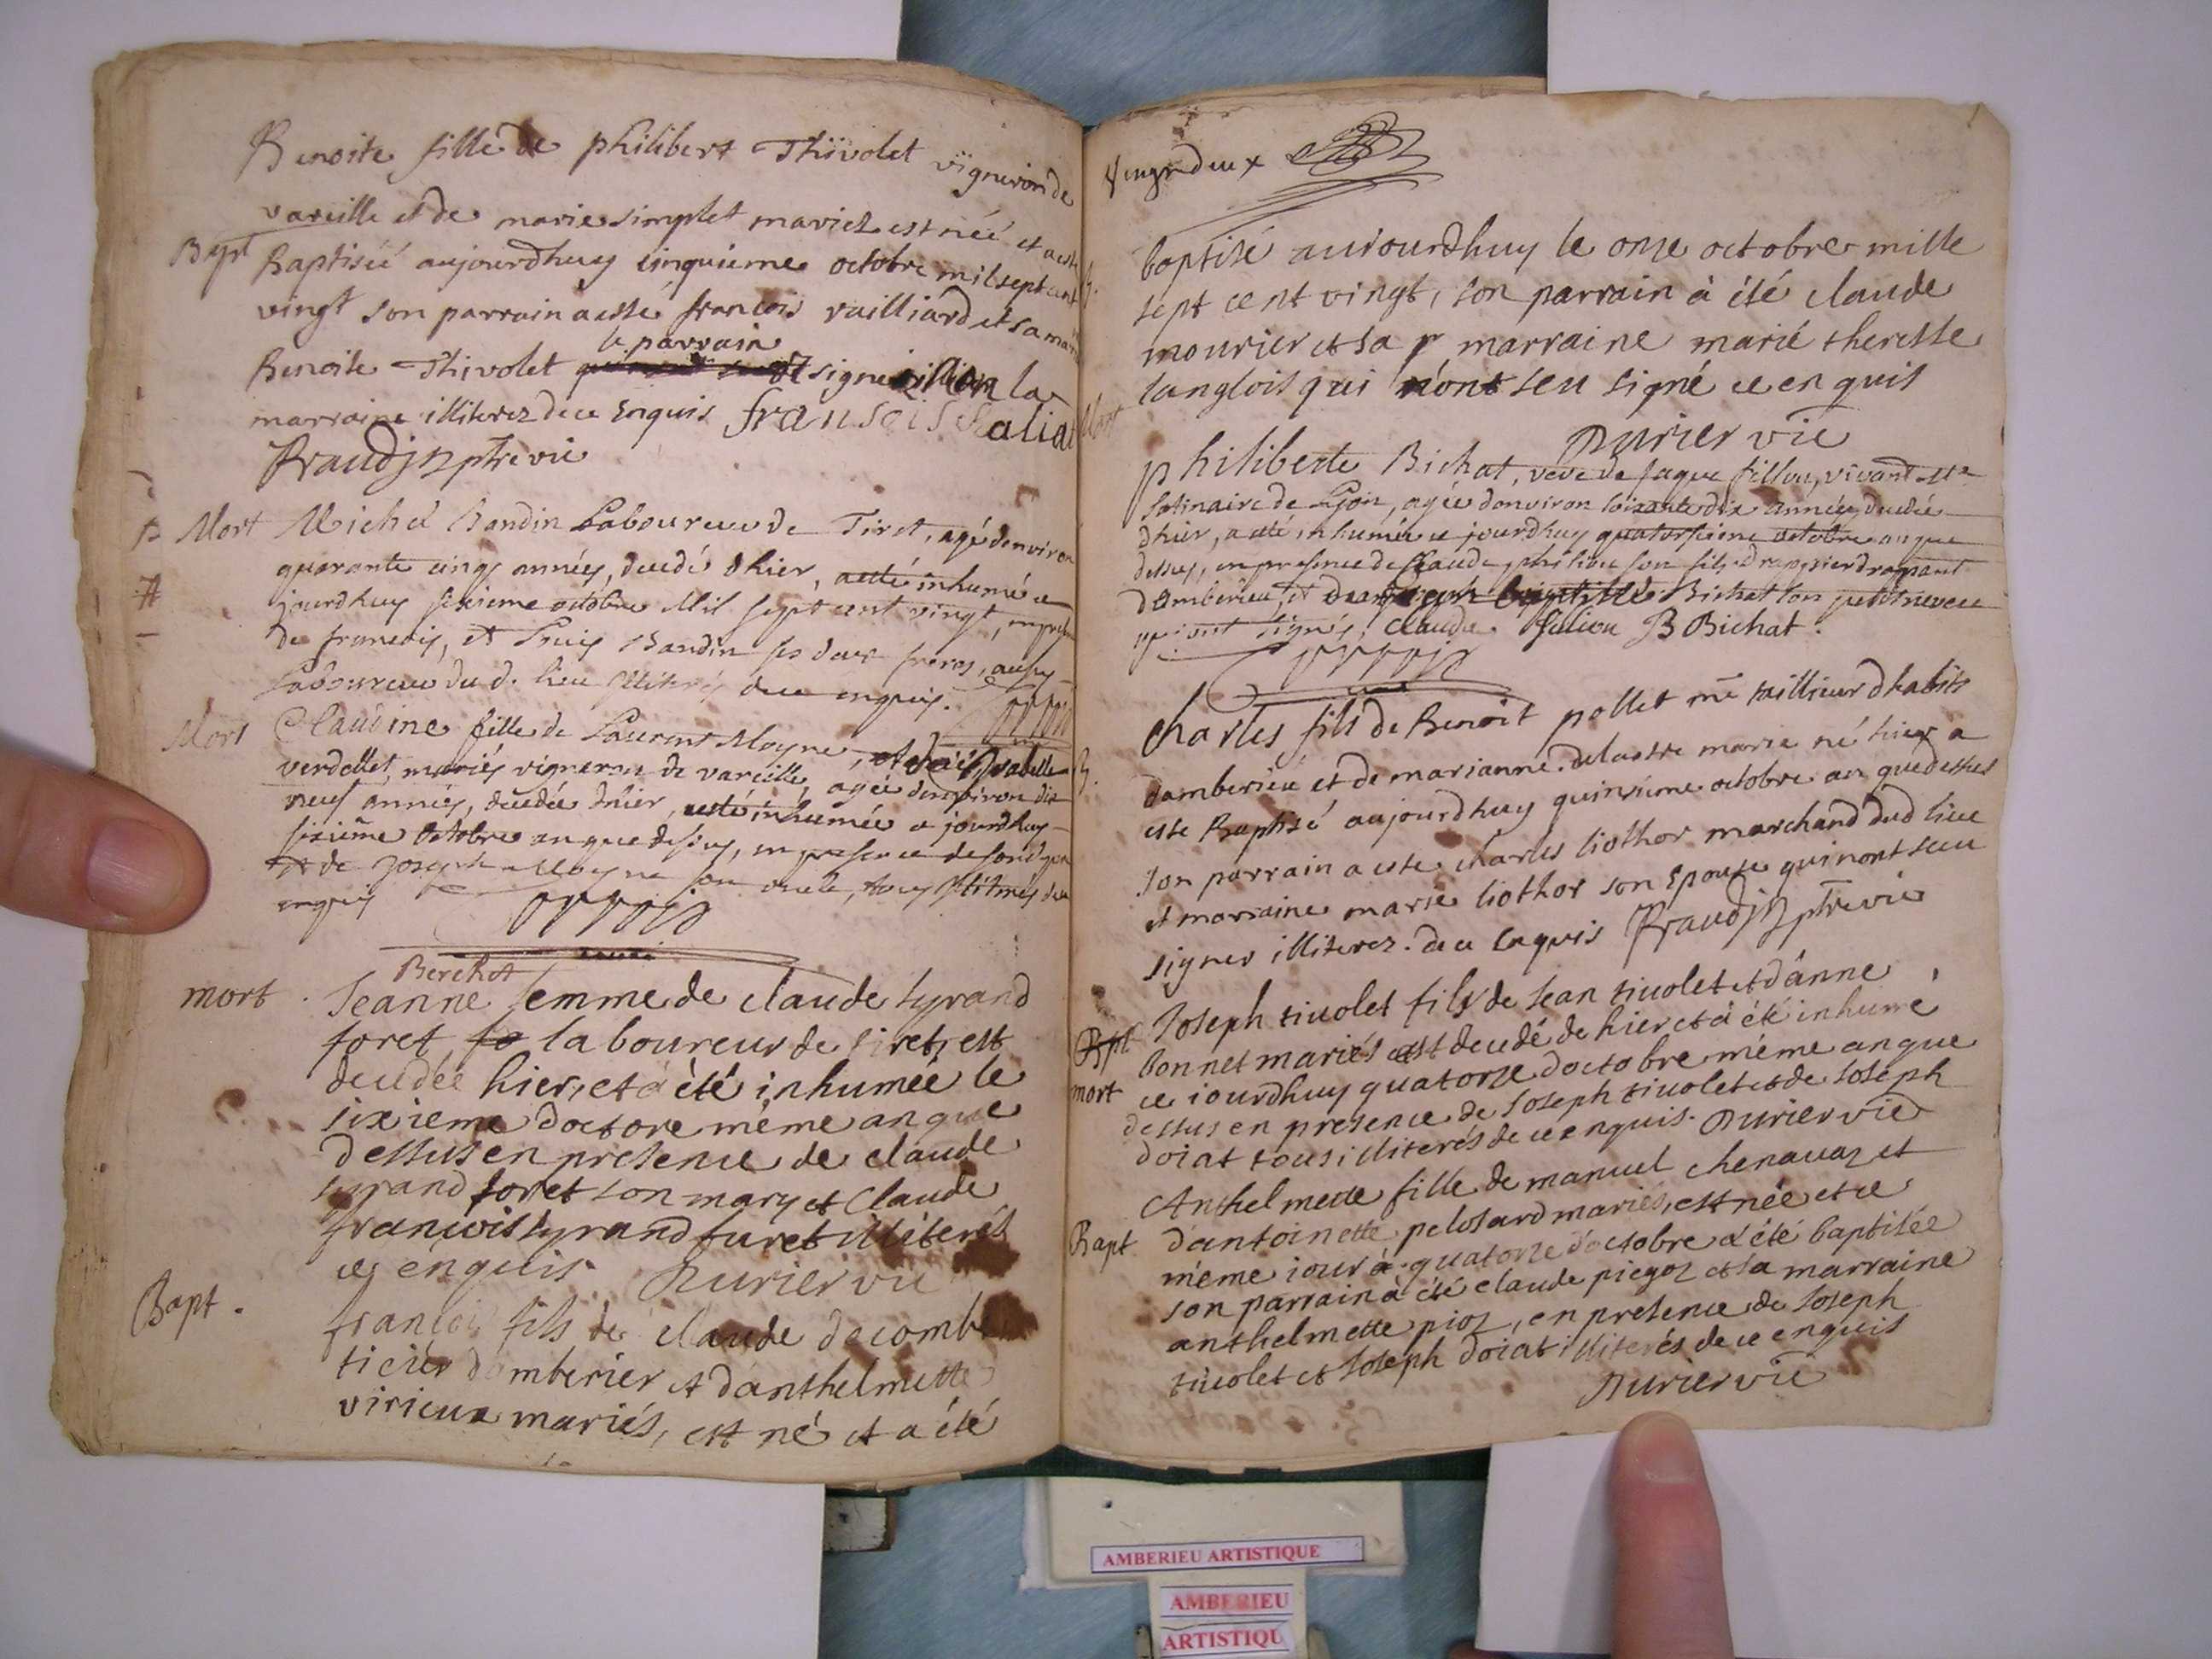 Benoite fille de philibert Thivolet vigneron de
vareille et de marie simplet mariez est née et a esté
Bapt
Baptisée aujourdhuy cinquieme octobre mil sept cent
vingt son parrain a esté francois vailliard et sa mar
le parrain
Benoite Thivolet signé la
marraine illiterez de ce Enquis
ptre vic
Mort
Michel Bandin Laboureur de Tiret, agé denviron
quarante cinq années, decedé dhier, a esté inhumé ce
jourdhuy sixieme octobre Mil sept cent vingt, en presen
de francois, et Louis Bandin ses deux freres, aussy
Laboureur du d. lieu illiterés de ce enquis.
Mort
Claudine fille de Laurent Moyne,
verdellet, mariés vigneron de vareille, agée denviron dix
neuf années, decedée dhier, a esté inhumée ce jourdhuy
sixieme octobre an que dessus, en presence de son
et de Joseph Moyne son oncle, tous
enquis
Berchot
mort
Jeanne femme de claude syrand
foret laboureur de tiret, est
decedée hier, et à été inhumée le
sixieme doctore même an que
dessus en presence de claude
syrand foret son mary et Claude
francois syrand furet illiterés
ce enquis Durier vic
Bapt.
françois fils de claude decomb
ticier damberier et danthelmette
virieux mariés, est né et a été
vingt deux
baptisé aujourdhuy le onze octobre mille
sept cent vingt, son parrain à été claude
mourier et sa marraine marié theresse
langlois qui n'ont seu signé ce enquis
Durier vic
Mort
philiberte Bichat, veve de Jaque fillou, vivant
de Lyon, agée denviron soixante dix années, decedée
dhier, a esté inhumée ce jourdhuy quatorsieme octobre an que
dessus, en presence de Claude philibu son fils
dAmberieu, et de Bichat son petit neveu
signés: Claude B Bichat.
B.
Charles fils de Benoit pollet me taillieur dhabits
damberieu et de marianne delastre marie né hier a
este Baptisé aujourdhuy quinsieme octobre an que dessus
son parrain a este charles liothor marchand dud lieu
et marraine marie liothor son Epouse qui nont seeu
signer illiterez. de ce Enquis ptre vic
Bpt
mort
Joseph tiuolet fils de Jean tiuolet et d'anne
bonnet mariés est decedé de hier et à été inhumé
ce iourdhuy quatorze doctobre même an que
dessus en presence de Joseph tiuolet et de Joseph
doiat tous illiterés de ce enquis. Durier vic
Bapt
Anthelmette fille de manuel chenauaz et
d'antoinette pelosard mariés, est née et ce
même iour à quatorze doctobre a été baptisée
son parrain à été claude piegoz et sa marraine
anthelmette pioz, en presence de Joseph
tiuolet et Joseph doiat illiterés de ce enquis
Durier vic
AMBERIEU ARTISTIQUE
AMBERIEU
ARTISTIQU